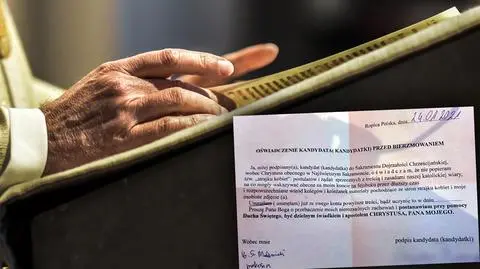 Ropica Polska, dnia 24.01.2021
OŚWIADCZENIE KANDYDATA (KANDYDATKI) PRZED BIERZMOWANIEM
Ja, niżej podpisany(a), kandydat (kandydatka) do Sakramentu Dojrzałości Chrześcijańskiej,
wobec Chrystusa obecnego w Najświętszym Sakramencie, oświadczam, że nie popieram
tzw. „strajku kobiet" postulatów i żądań sprzecznych z treścią i zasadami naszej katolickiej wiary,
na co mogły wskazywać obecne za moim kontem na fejsbuku przez dłuższy czas
i rozpowszechniane wśród kolegów i koleżanek materiały pochodzące ze stron strajku kobiet i moje
osobiste zdjęcie (a).
(usunąłem) już ze swego konta powyższe treści, bądź uczynię to w dniu
Proszę Pana Boga o przebaczenie moich nierozważnych zachowań i postanawiam przy pomocy
Ducha Świętego, być dzielnym świadkiem i apostołem CHRYSTUSA, PANA MOJEGO.
Wobec mnie podpis kandydata (kandydatki)